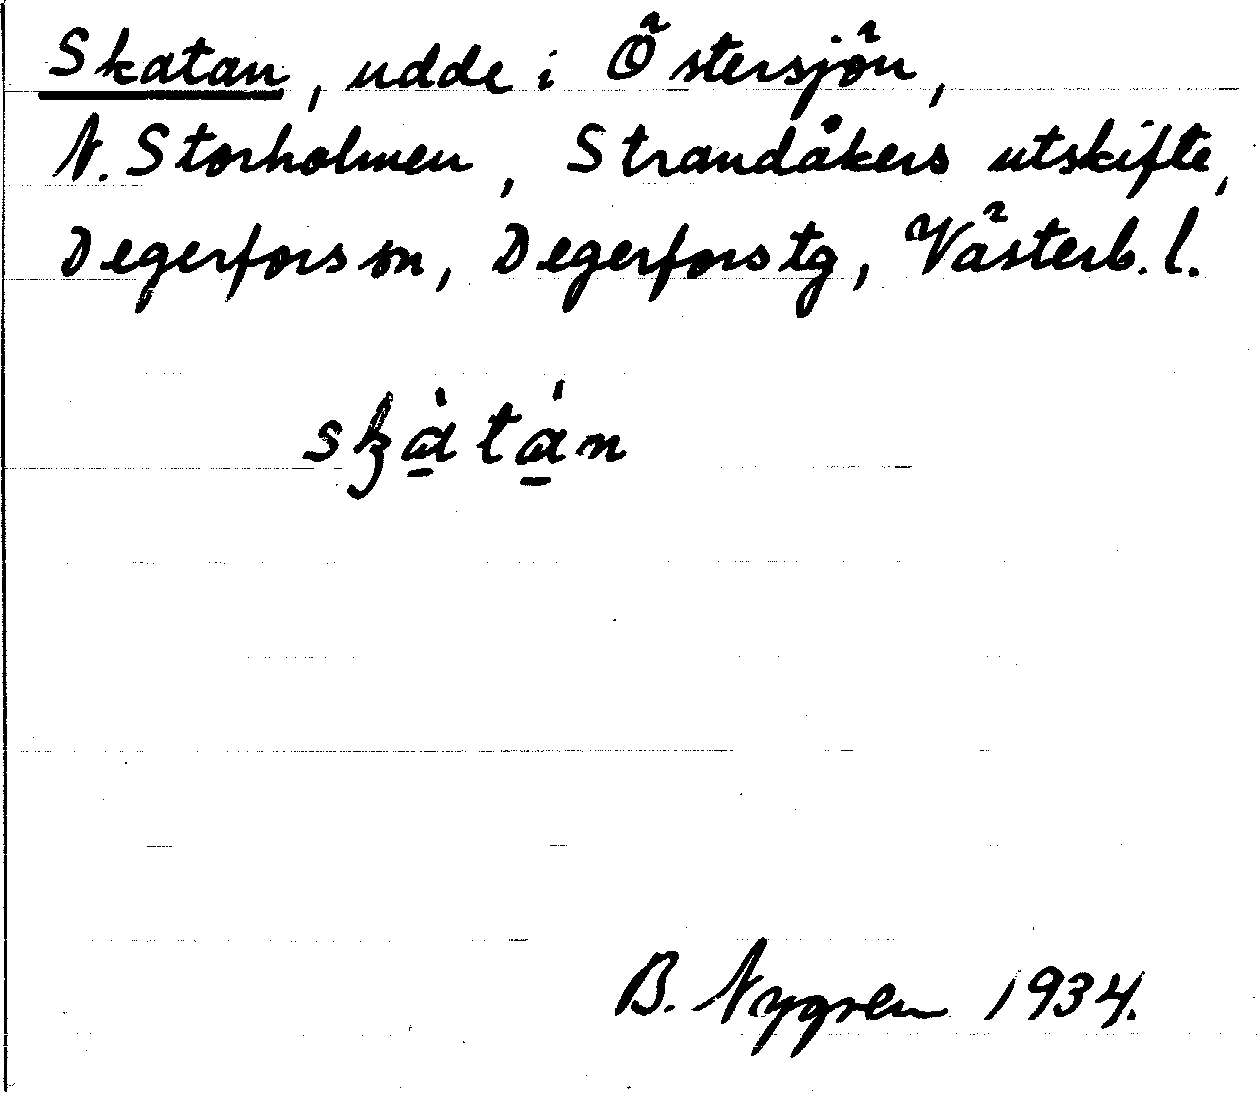 Skatan, udde i Östersjön,
N. Storholmen, Strandåkers utskifte,
Degerfors sn, Degerfors tg, Västerb. l.
skà̱tá̱n
B. Nygren 1934.